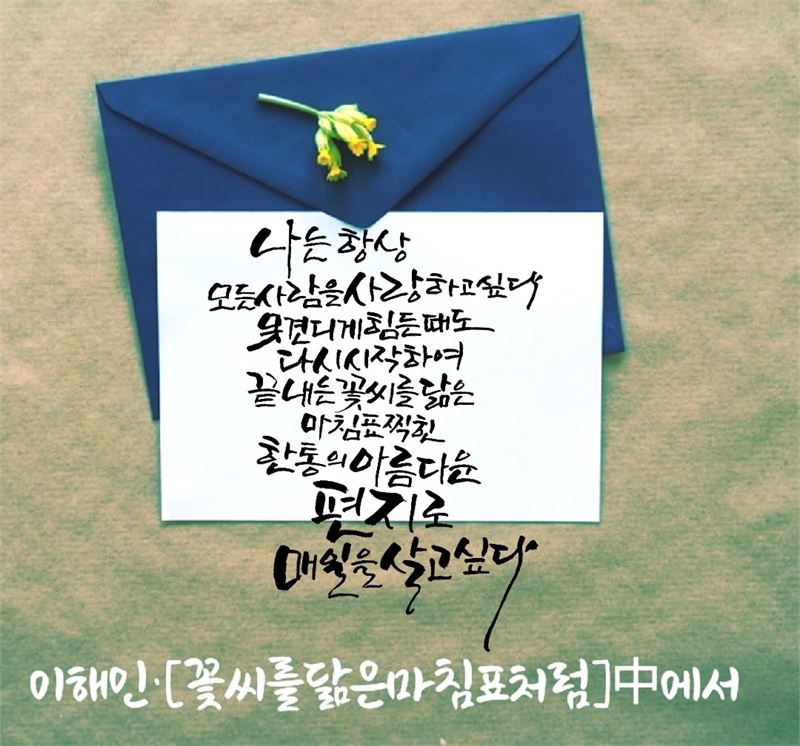 나는 항상
모든사람을사랑하고싶다
못견디게힘든때도
다시시작하여
끝내는꽃씨를닮은
마침표찍힌
한통의아름다운
편지로
매일을살고싶다
이해인·[꽃씨를닮은마침표처럼]中에서